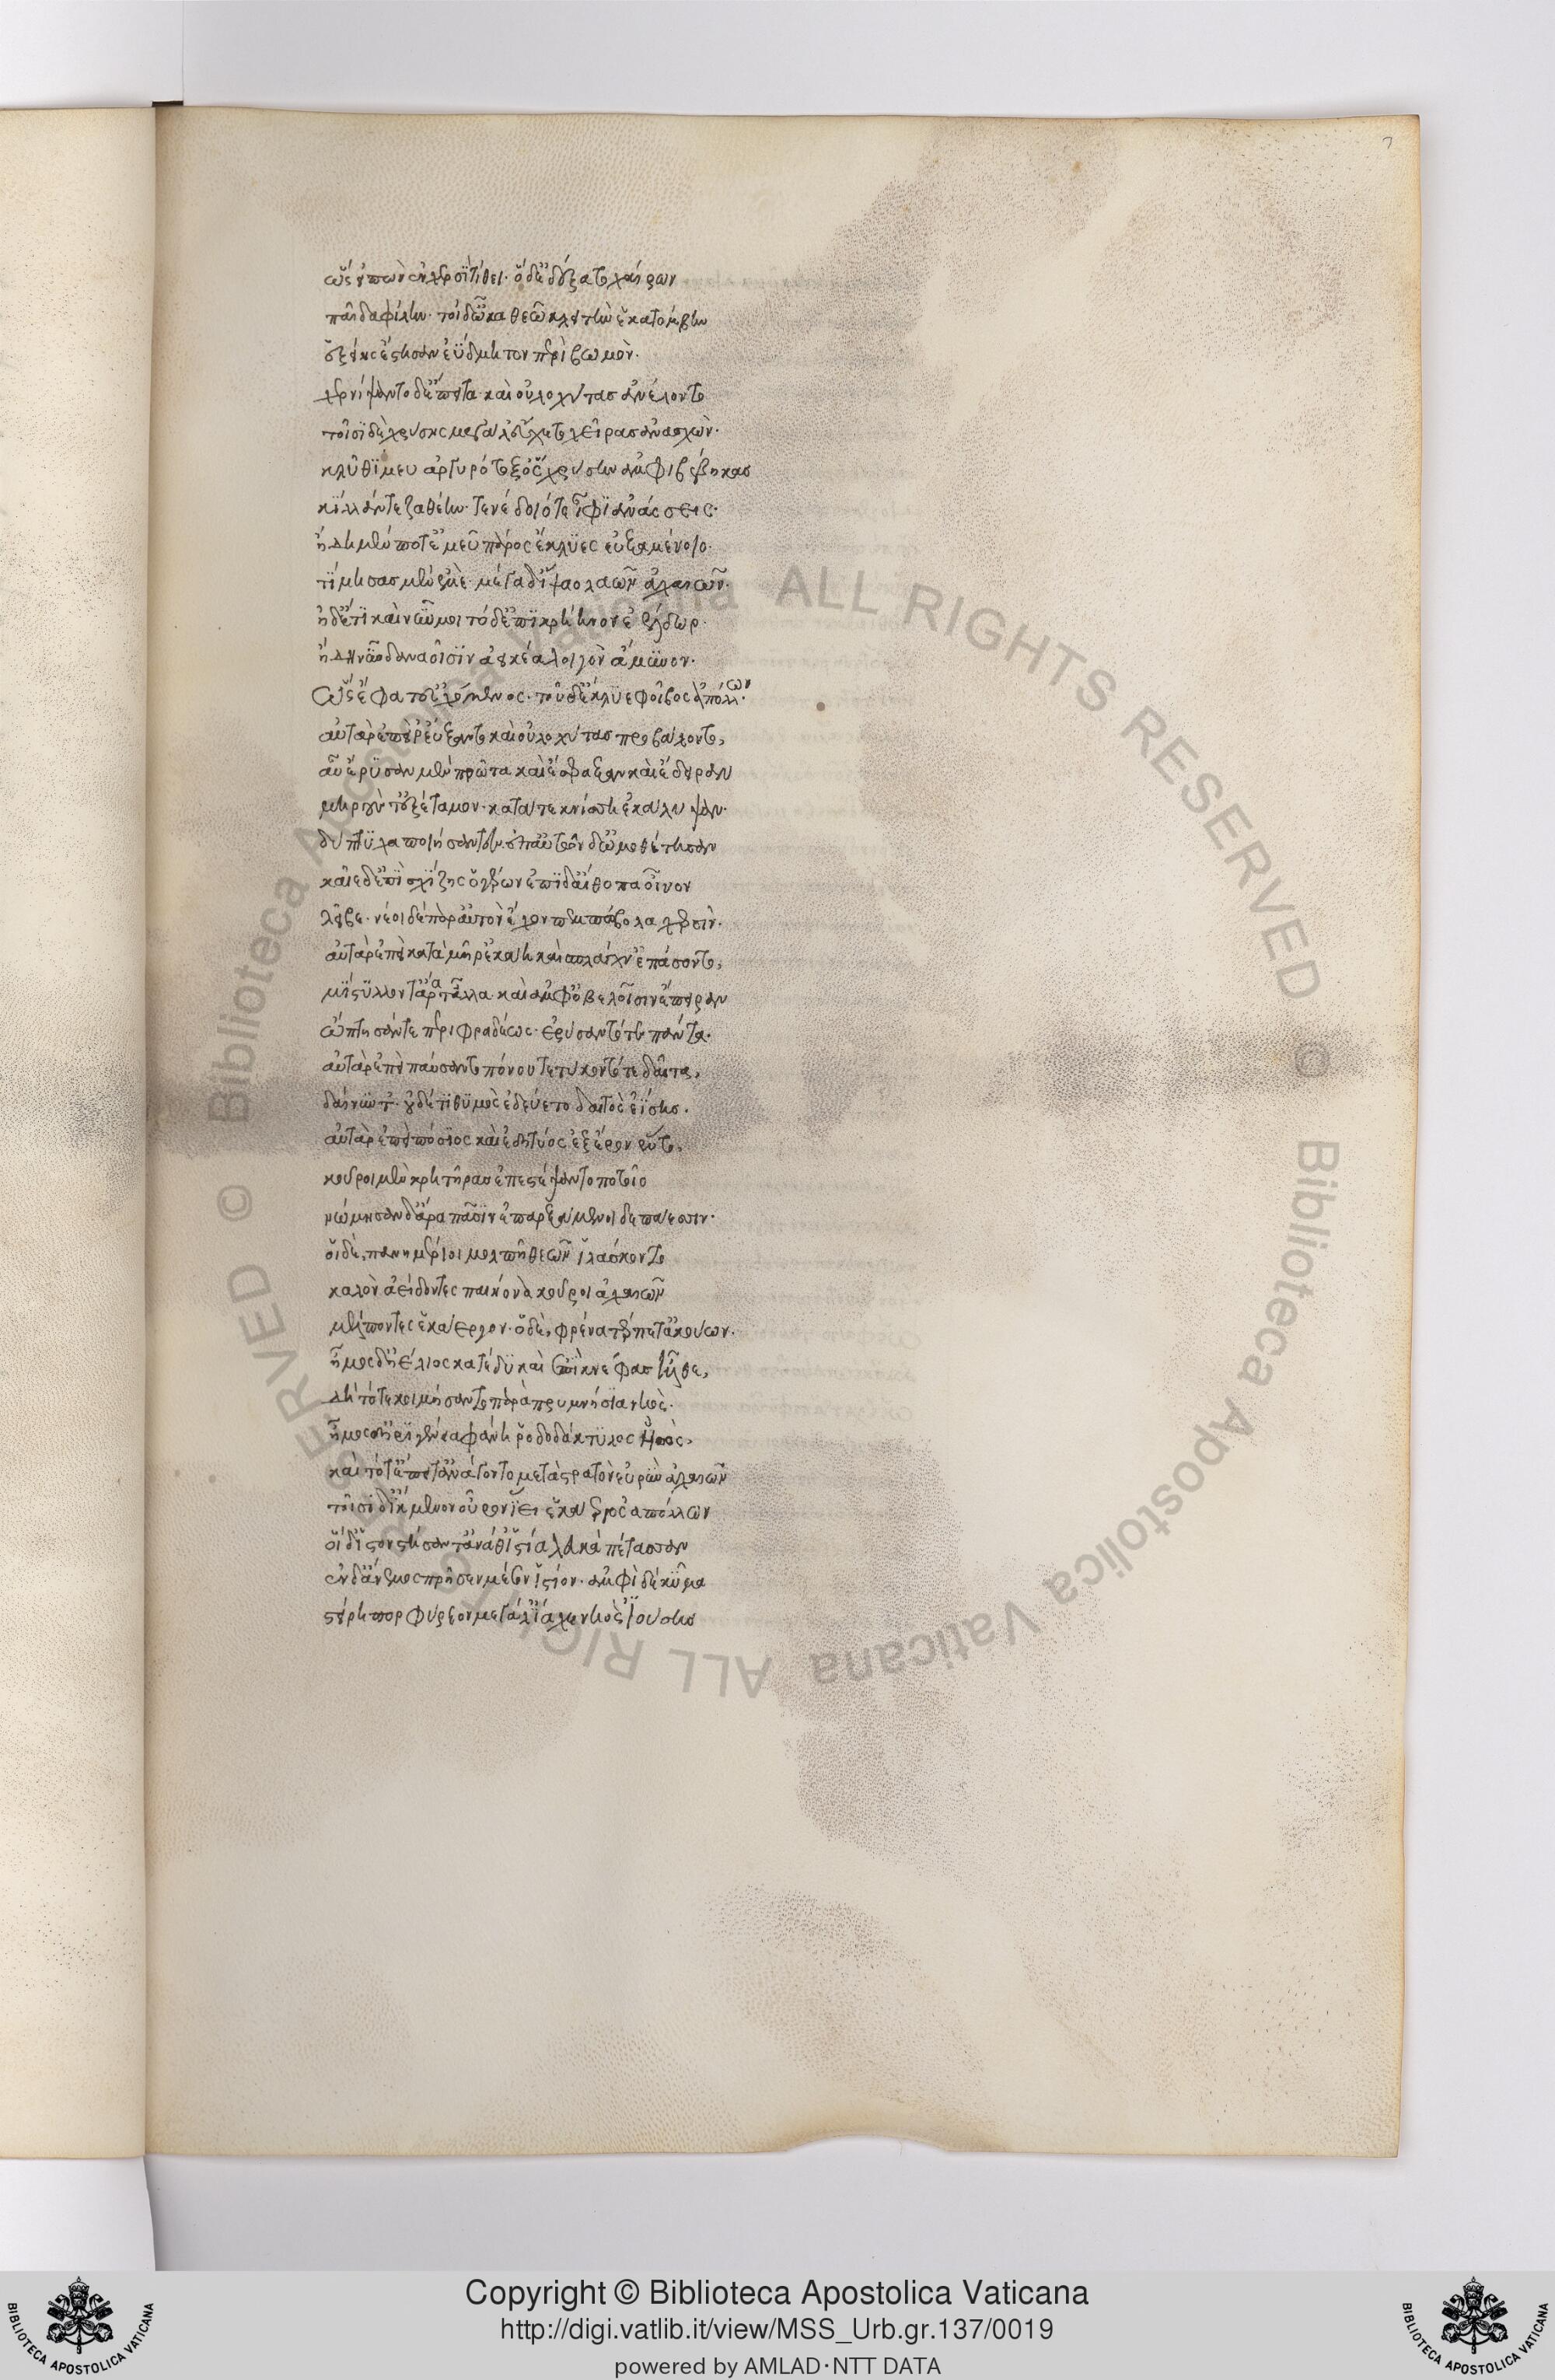 7
ὣς εἰπὼν ἐν χερσὶ τίθει· ὁ δ' ἐδέξατο χαίρων
παῖδα φίλην· τοὶ δ' ὦκα θεῶ κλειτὴν ἑκατόμβην
ἑξείης ἔστησαν ἐΰδμητον περὶ βωμόν·
χερνίψαντο δ' ἔπειτα· καὶ οὐλοχύτας ἀνέλοντο
τοῖσι δὲ χρύσης μεγάλ' εὔχετο χεῖρας ἀνασχών·
κλῦθί μευ ἀργυρότοξ' ὃς χρύσην ἀμφιβέβηκας
κίλλάν τε ζαθέην· τενέδοιό τε ἶφι ἀνάσσεις·
ἠ δὴ μὲν ποτ' ἐμεῦ πάρος ἔκλυες εὐξαμένοιο·
τίμησας μὲν ἐμὲ· μέγα δ' ἴψαο λαὸν ἀχαιῶν·
ἠδ' ἔτι καὶ νῦν μοι τόδ' ἐπικρήηνον ἐέλδωρ·
ἤδη νῦν δαναοῖσιν ἀεικέα λοιγὸν ἄμυνον·
Ὣς ἔφατ' εὐχόμενος· τοῦ δ' ἔκλυε φοῖβος ἀπόλλων·
αὐτὰρ ἐπεί ῥ' εὔξαντο καὶ οὐλοχύτας προβάλοντο,
αὖ ἔρυσαν μὲν πρῶτα καὶ ἔσφαξαν καὶ ἔδειραν
μηρούς τ' ἐξέταμον· κατά τε κνίσῃ ἐκάλυψαν·
δίπτυχα ποιήσαντες· ἐπ' αὐτῶν δ' ὠμοθέτησαν
καῖε δ' ἐπὶ σχίζῃς ὁ γέρων ἐπὶ δ' αἴθοπα οἶνον
λεῖβε· νέοι δὲ παρ' αὐτὸν ἔχον πεμπώβολα χερσίν·
αὐτὰρ ἐπεὶ κατὰ μῆρ' ἐκάη καὶ σπλάγχν' ἐπάσαντο,
μίστυλλόν τ' ἄρα τἆλλα· καὶ ἀμφ' ὀβελοῖσιν ἔπειραν
ὤπτησάν τε περιφραδέως· ἐρύσαντό τε πάντα·
αὐτὰρ ἐπεὶ παύσαντο πόνου τετύκοντό τε δαῖτα,
δαίνυντ'· οὐδέ τι θυμὸς ἐδεύετο δαιτὸς ἐΐσης·
αὐτὰρ ἐπεὶ πόσιος καὶ ἐδητύος ἐξ ἔρον ἕντο,
κοῦροι μὲν κρητῆρας ἐπεστέψαντο ποτοῖο
νώμησαν δ' ἄρα πᾶσιν ἐπαρξάμενοι δεπάεσσιν·
οἱ δὲ, πανημέριοι μολπῇ θεὸν ἱλάσκοντο
καλὸν ἀείδοντες παιήονα κοῦροι ἀχαιῶν
μέλποντες ἑκάεργον· ὁ δὲ, φρένα τέρπετ' ἀκούων·
ἦμος δ' ἠέλιος κατέδυ καὶ ἐπὶ κνέφας ἦλθε,
δὴ τότε κοιμήσαντο παρὰ πρυμνήσια νηὸς·
ἦμος δ' ἠριγένεια φάνη ῥοδοδάκτυλος Ἠὼς,
καὶ τότ' ἔπειτ' ἀνάγοντο μετὰ στρατὸν εὐρὺν ἀχαιῶν
τοῖσι δ' ἴκμενον οὖρον ἵει ἑκάεργος ἀπόλλων
οἱ δ' ἱστὸν στήσαντ' ἀνά θ' ἱστία λευκὰ πέτασσαν
ἐν δ' ἄνεμος πρῆσεν μέσον ἱστίον· ἀμφὶ δὲ κῦμα
στείρῃ πορφύρεον μεγάλ' ἴαχε νηὸς ἰούσης
Copyright © Biblioteca Apostolica Vaticana
http://digi.vatlib.it/view/MSS_Urb.gr.137/0019
powered by AMLAD·NTT DATA
BIBLIOTECA APOSTOLICA VATICANA
BIBLIOTECA APOSTOLICA VATICANA
© Biblioteca Apostolica Vaticana ALL RIGHTS RESERVED © Biblioteca Apostolica Vaticana ALL RIGHTS RESERVED